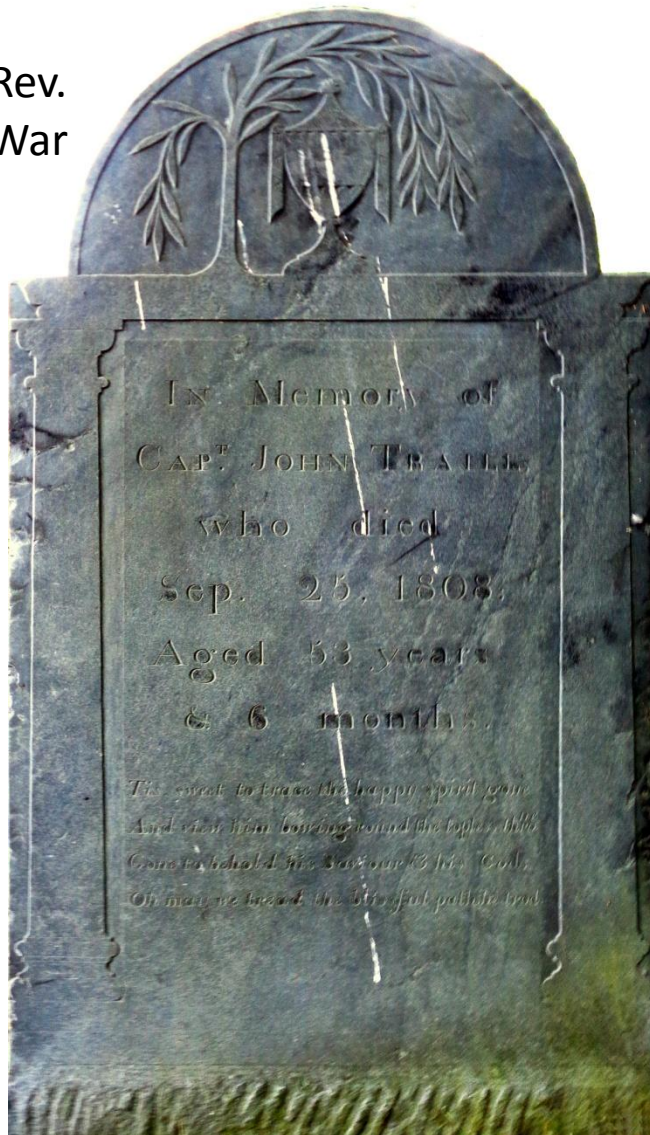 Rev.
War
In Memory of
CAPT. JOHN TRAILL
who died
Sep. 25. 1808.
Aged 53 years
& 6 months.
Tis sweet to trace the happy spirit gone
And view him bowing round the
Gone to behold his Saviour & his God,
Oh may we tread the blissful path he trod.